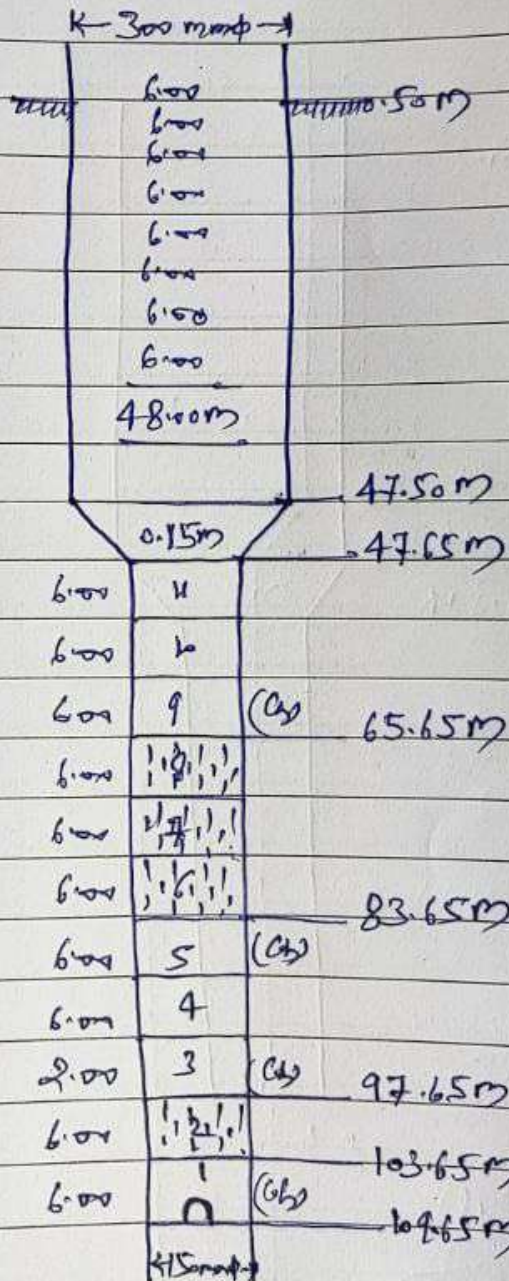 300 mmφ
6.00 0.50m
6.00
6.00
6.00
6.00
6.00
6.00
6.00
48.00m
47.50m
0.15m 47.65m
6.00 11
6.00 10
6.00 9 65.65m
6.00 8
6.00 7
6.00 6 83.65m
6.00 5
6.00 4
2.00 3 97.65m
6.00 2 103.65m
6.00 1 109.65m
150mmφ